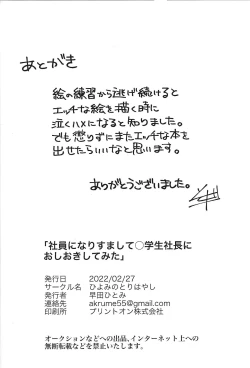 あとがき
絵の練習から逃げ続けると
エッチな絵を描く時に
泣くハメになると知りました。
でも懲りずにまたエッチな本を
出せたらいいなと思います。
ありがとうございました。
「社員になりすまして○学生社長に
おしおきしてみた」
発行日 2022/02/27
サークル名 ひよみのとりはやし
発行者 早田ひとみ
連絡先 akrume55@gmail.com
印刷所 プリントオン株式会社
オークションなどへの出品、インターネット上への
無断転載などを禁止いたします。